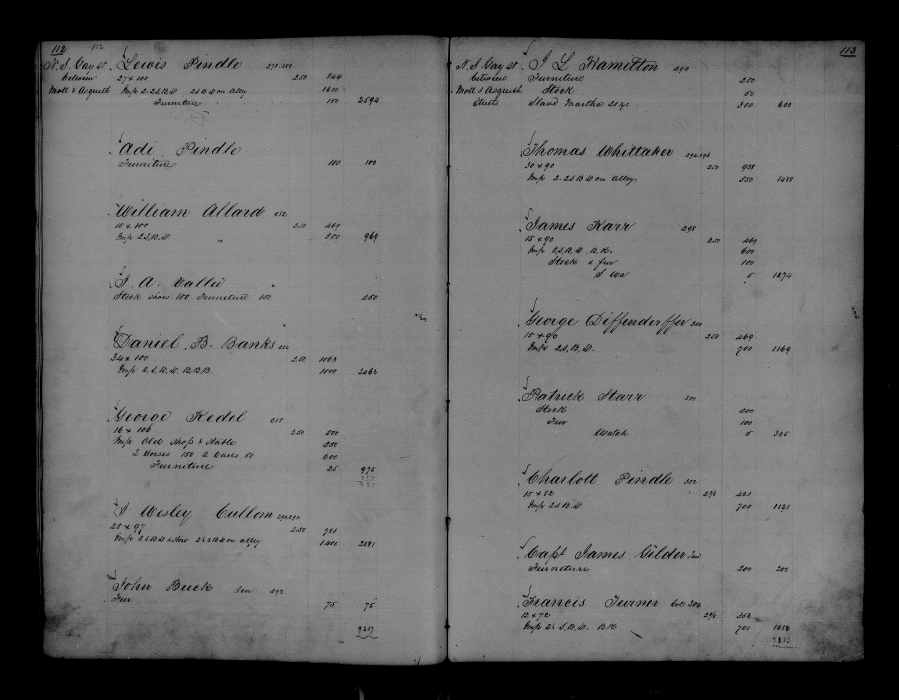 112
113
N. S. Gay st. Lewis Pindle
between 27 x 100 250 844
Mott & Asquith Imp 2. 2 S. B. H 2 S B H on alley 1600
Furniture 150 2594
Adi Pindle
Furniture 100 100
William Allard
15 x 100 250 469
Imp 2 S. B. H " 500 969
J. A.
Stock shoes 100 Furniture 150 250
Daniel B. Banks
34 x 100 250 1063
Imp 2 S. B. H. B. B. B. 1000 2063
George Kedel
16 x 106 250 500
Imp Old Shop & Stable 250
2 Horses 150 2 Carts 50 200
Furniture 25 975
J Wesley Cullom
25 x 97 250 781
Imp 2 S B H & Store 2 S B H on alley 1400 2181
John Buck 292
Fur 75 75
9207
113
N. S. Gay st. J L Hamilton 290
between Furniture 250
Mott & Asquith Stock 50
Streets Slave Martha 21 ys 300 600
Thomas Whittaker 294.296
30 x 90 250 938
Imp 2. 2 S B H on alley 550 1488
James Karr 298
15 x 90 250 469
Imp 2 S. B. H. B. K. 600
Stock & fur 100
S Wa 5 1174
George Diffenderffer 300
15 x 90 250 469
Imp 2 S. B. H. 700 1169
Patrick Starr 300
Stock 200
Fur 100
Watch 5 305
Charlott Pindle 302
15 x 82 421
Imp 2 S B H 700 1121
Capt James Gilder
Furniture 200 200
Francis Turner 304
12 x 72 356
Imp 2 S. B. H. B K 700 1056